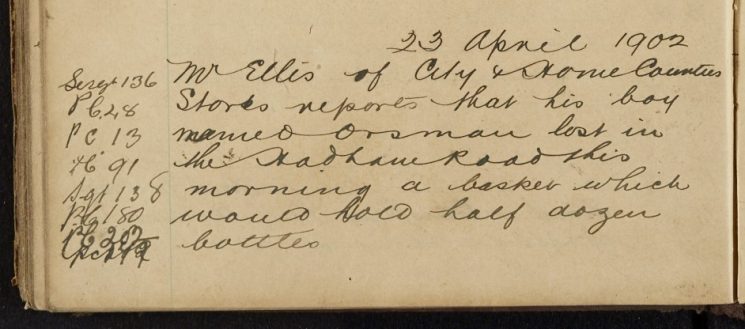 23 April 1902
Sergt 136 Mr Ellis of City & Home Counties
PC 28 Stores reports that his boy
PC 13 named Orsman lost in
PC 91 the Hadham Road this
Sgt 138 morning a basket which
PC 180 would hold half dozen
bottles